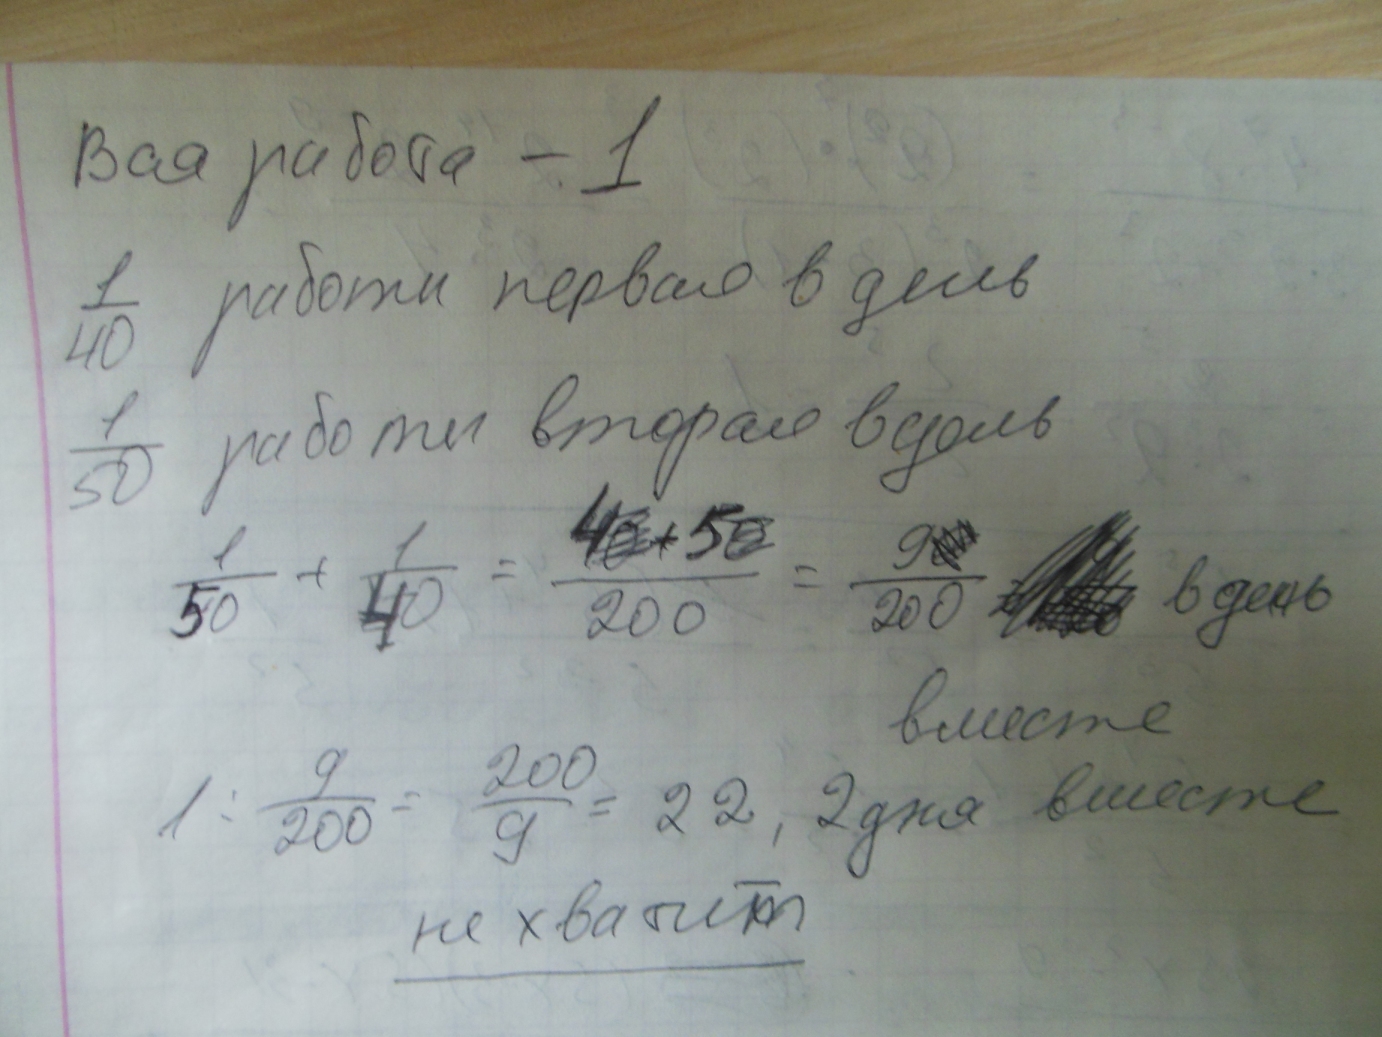 Вая работа - 1
1/40 работы первая в день
1/50 работы вторая в день
1/50 + 1/40 = 4+5/200 = 9/200 в день
вместе
1 : 9/200 = 200/9 = 22,2 дня вместе
не хватит